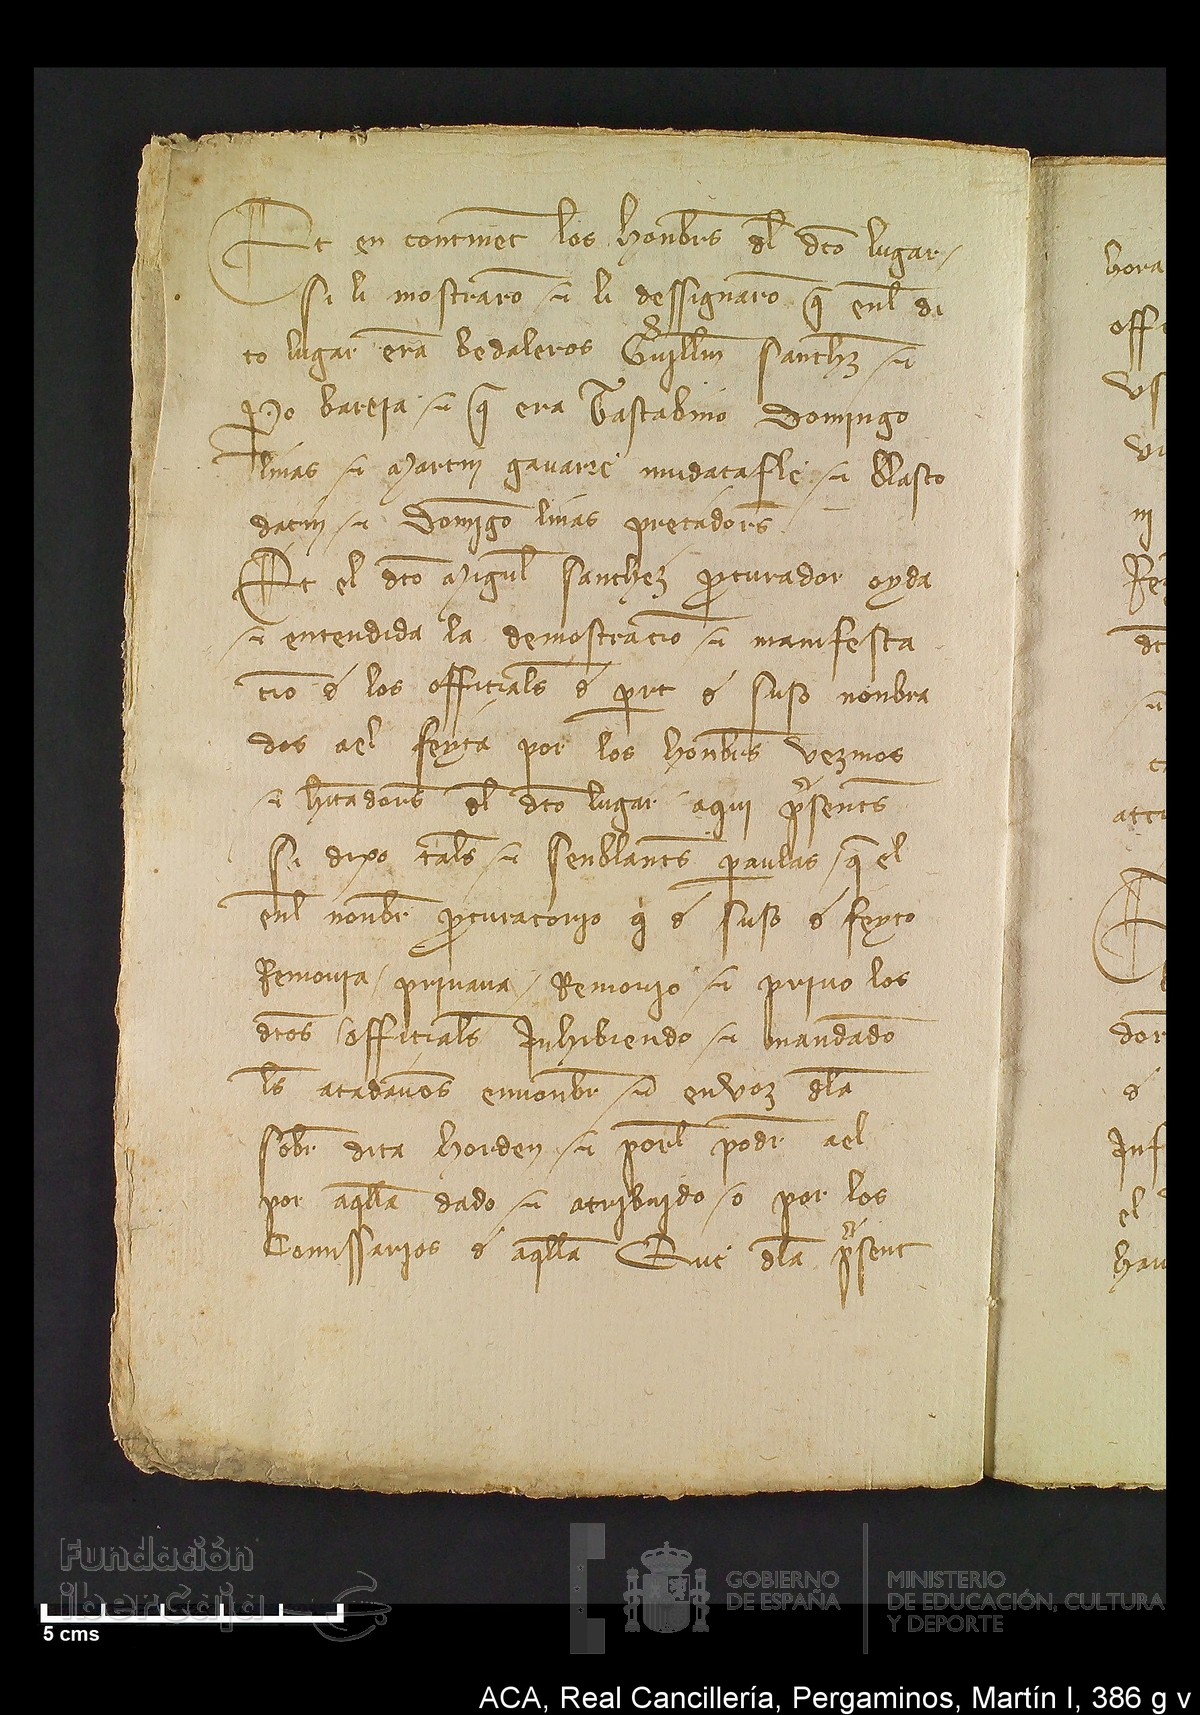 Et en continet los honbrs dl dco lugar
Si li mostraro et li dessignaro q enl di
to lugar era bedaleros Guillm Sanchz et
Po bareja et q era Tastabino Domingo
linas et Martin gavarre mudacafle et blasco
dacin et Domigo linas precadors
Et el dco Migel Sanchez prcurador oyda
et entendida la demostracio et manifesta
cio de los officials de part de suso nonbra
dos a el feyta por los honbrs vezinos
et hitadors dl dco lugar aqui prsents
Si dixo tals et senblants paraulas q el
enl nonbr prcuratorio q de suso de feyto
Removia / privava / Removio et privo los
dcos officials Inhibiendo et mandado
ls atadavos en nonbr et en voz dla
sobr dita horden et porl podr a el
por aqlla dado et atribuido o por los
Comissarios de aqlla Que dla prsent
hora
offi
us
el
hau
Fundación
ibercaja
GOBIERNO
DE ESPAÑA
MINISTERIO
DE EDUCACIÓN, CULTURA
Y DEPORTE
5 cms
ACA, Real Cancillería, Pergaminos, Martín I, 386 g v